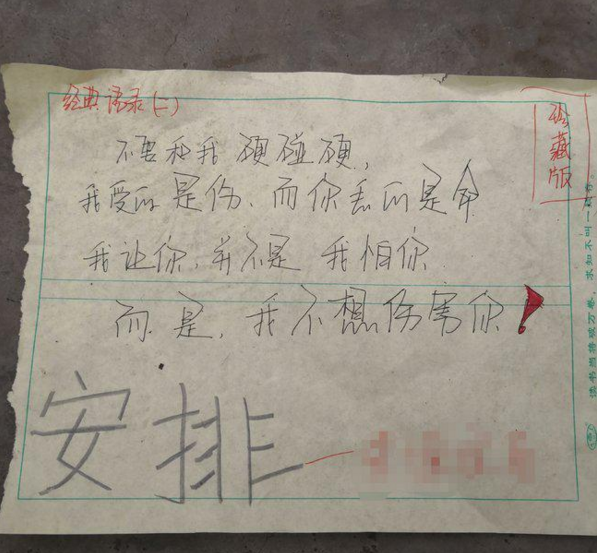 经典语录(二)
珍藏版
不要和我硬碰硬,
我受的是伤、而你丢的是命
我让你,并不是我怕你.
而是,我不想伤害你!
安排